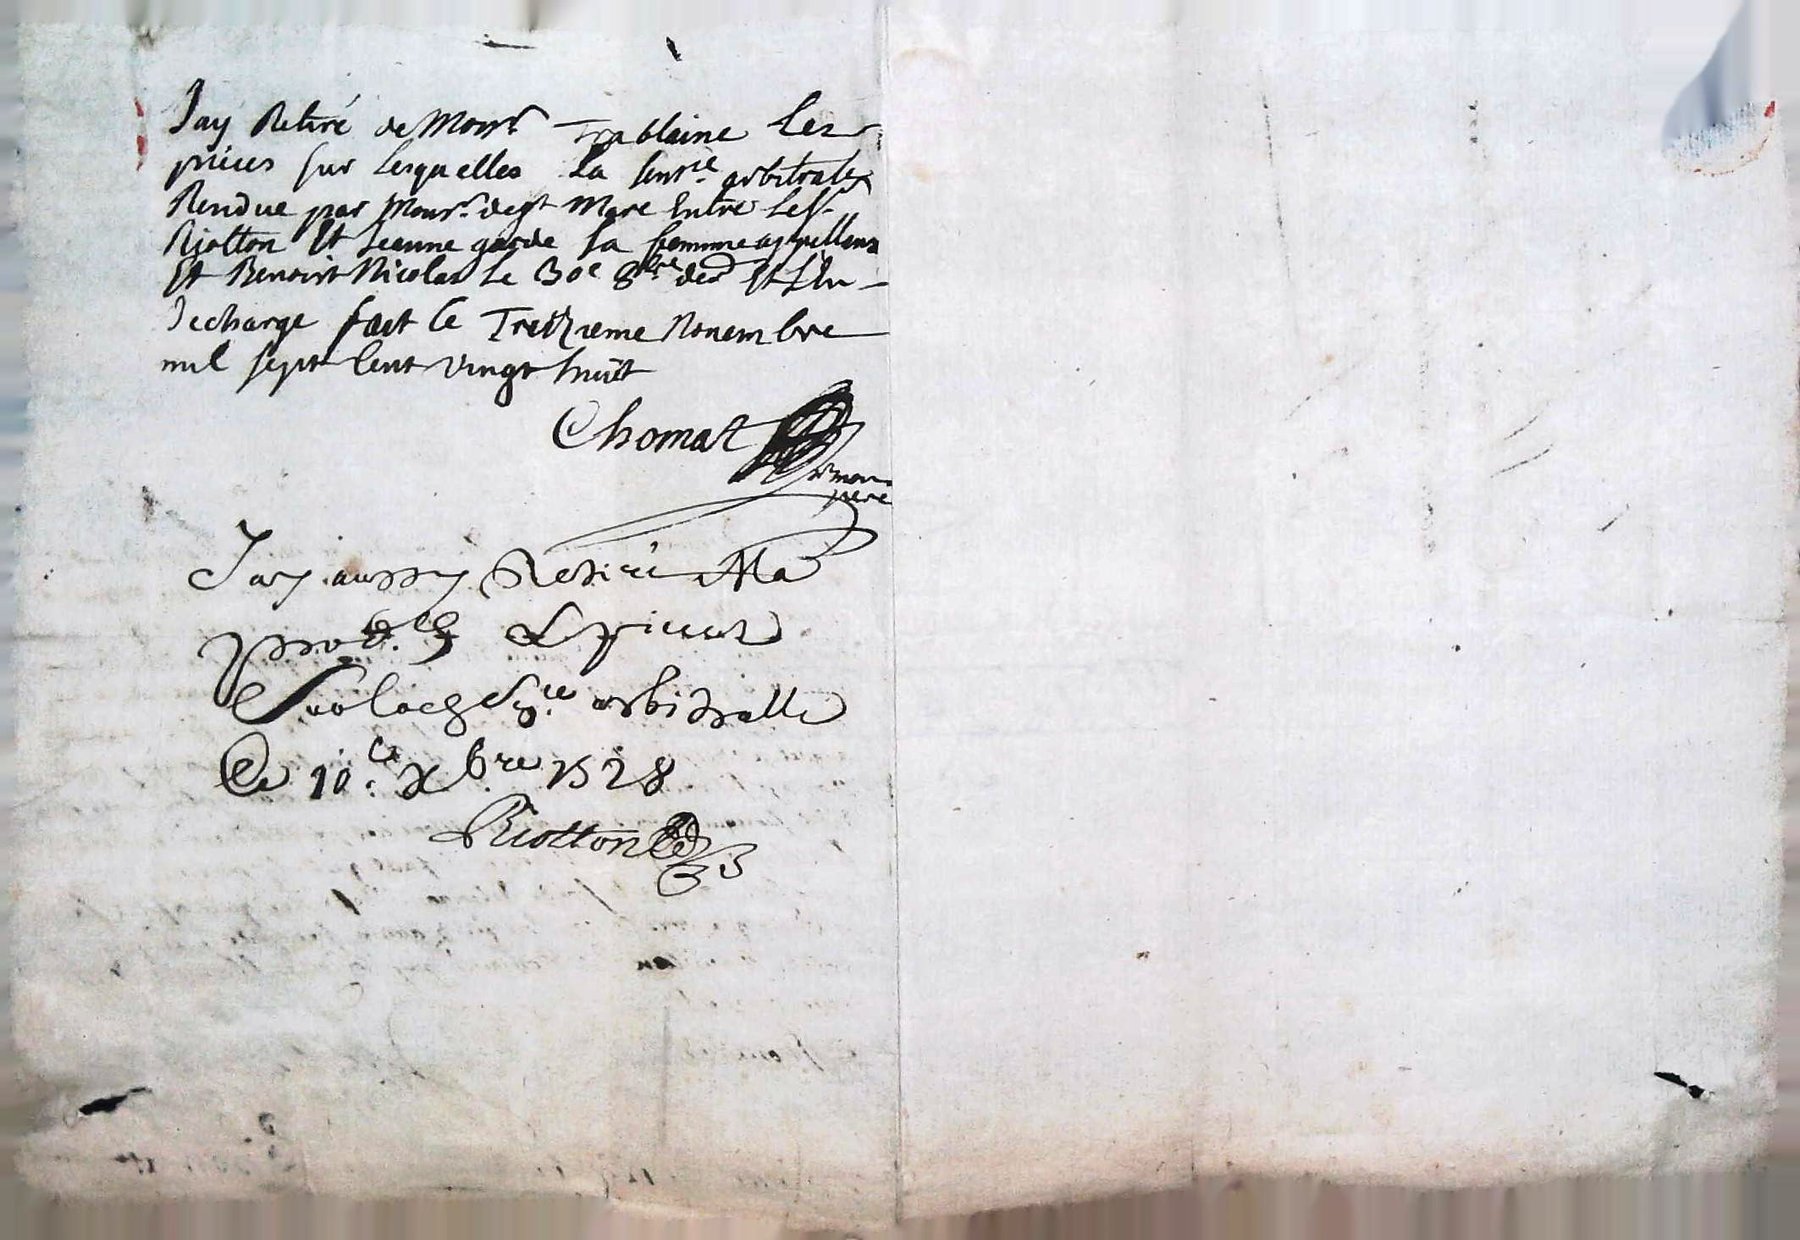 Jay Retiré de Monsr Trablaine Les
pieces sur Lesquelles La sentce arbitralle
Rendue par Monsr de st Marc Entre Le sr
Riotton Et Jeanne garde sa femme appellans
Et Benoist Nicolas Le 30e 8bre der Et L'En
decharge fait Ce Treizieme Novembre
mil sept Cent vingt huit
Chomat
pr mon
pere
Jay aussy Retiré Ma
Et pieces
Sur Lad sce arbitralle
Ce 10e xbre 1728
Riotton